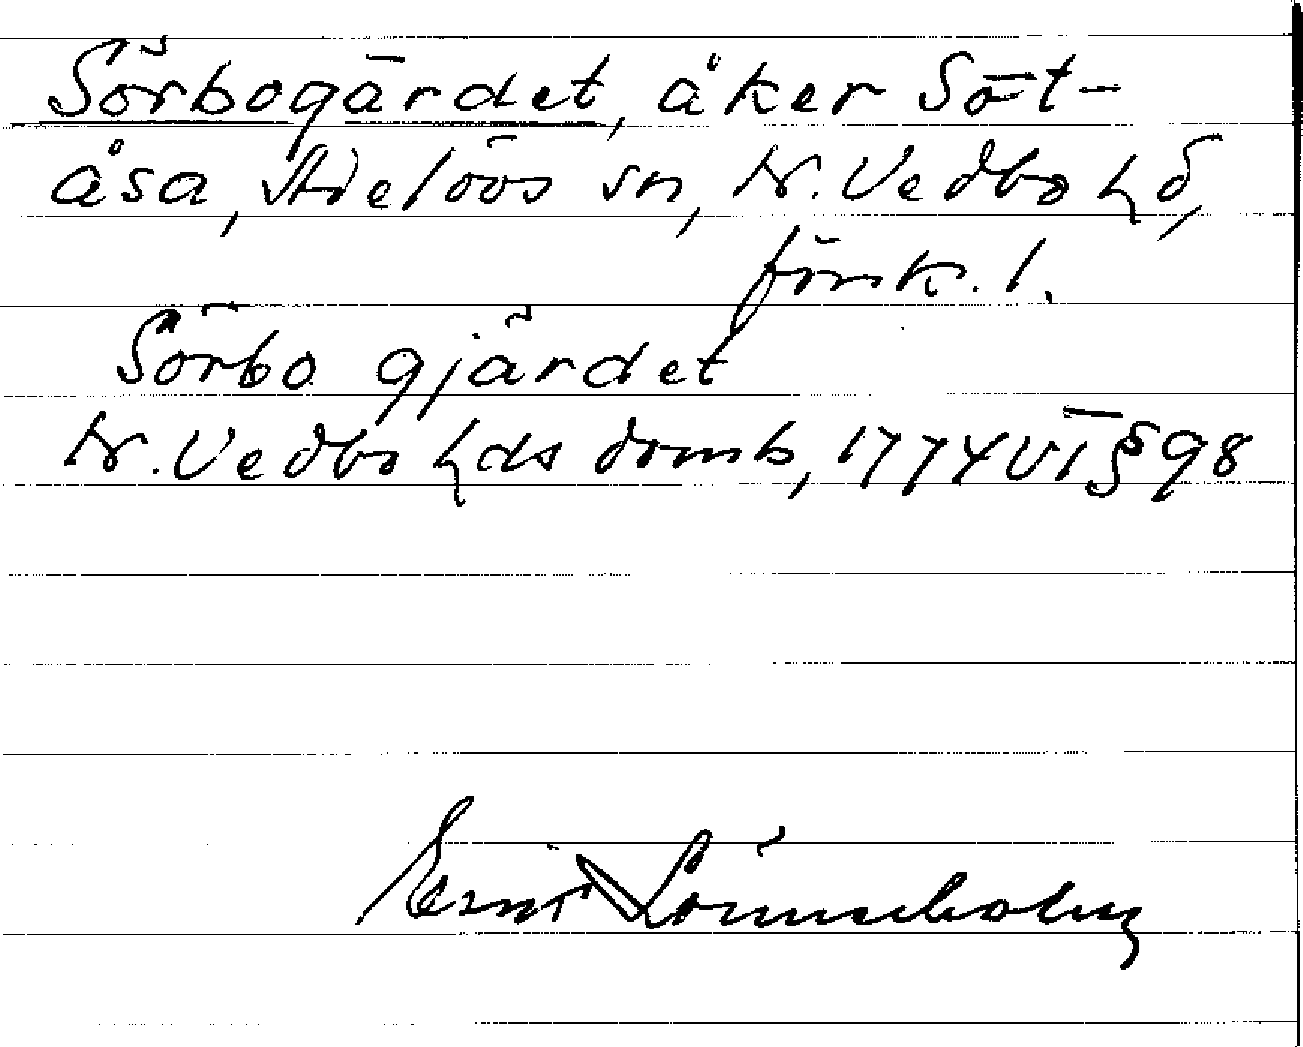 Sörbogärdet, åker Söt-
åsa, Adelövs sn, N. Vedbo hd,
förk. l.
Sörbo gjärdet
N. Vedbo hds domb, 1774 VI § 98
Ernst Lönnerholm